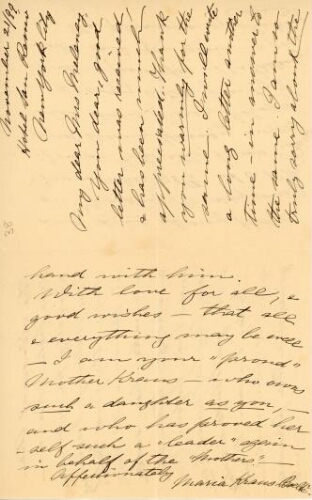 November 2/98
Hotel San Remo
New York City
My dear Mrs Meleney
You dear, good
letter was received
& has been much
appreciated. I thank
you warmly for the
same. I will write
a long letter another
time - in answer to
the same. I am so
truly sorry about the
38
hand with him.
With love for all, &
good wishes - that all
& everything may be well
- I am your "proud"
Mother Kraus - who owns
such a daughter as you, -
and who has proved her
-self such a "leader" again
in behalf of the "Mother" -
Affectionately
Maria Kraus